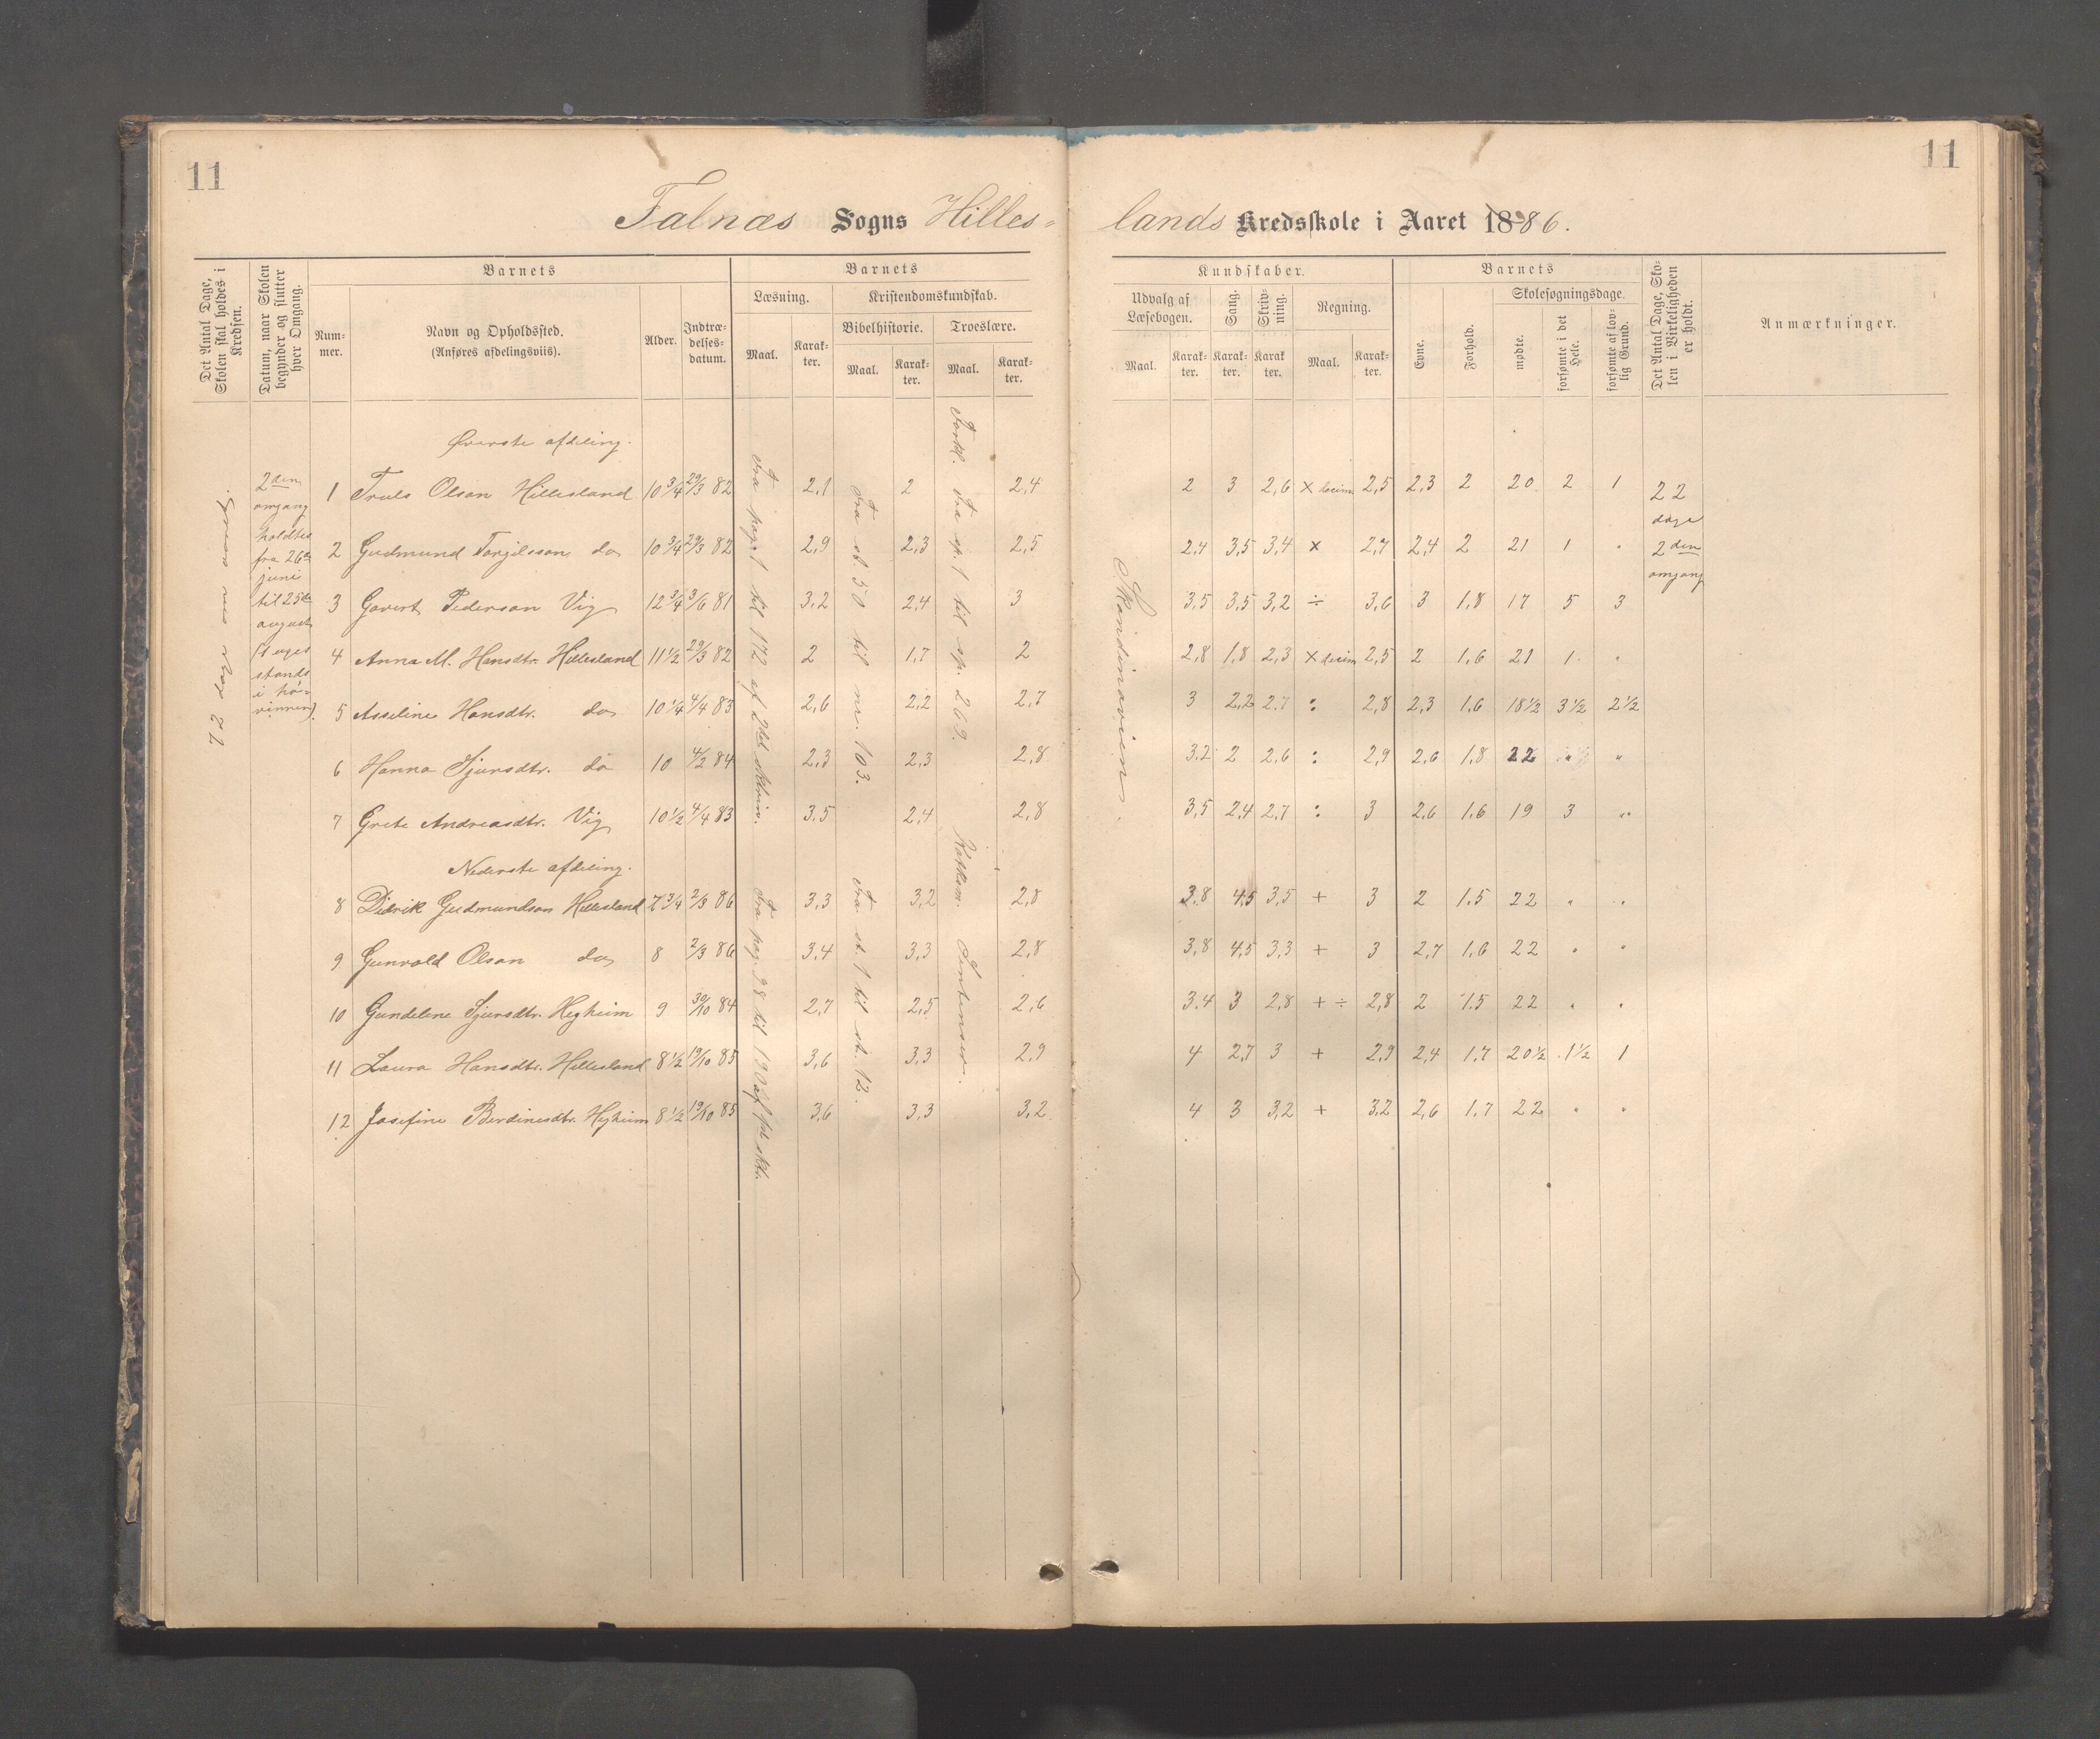 11
11
Falnæs Sogns Hilles=
lands Kredsskole i Aaret 1886.
Det Antal Dage, Skolen skal holdes i Kredsen.
Datum, naar Skolen begynder og slutter hver Omgang.
Barnets
Num-mer.
Navn og Opholdssted.
(Anføres afdelingsviis).
Alder.
Indtræ-delses-datum.
Barnets
Læsning.
Maal.
Karak-ter.
Kristendomskundskab.
Bibelhistorie.
Maal.
Karak-ter.
Troeslære.
Maal.
Karak-ter.
Kundskaber.
Udvalg af Læsebogen.
Maal.
Karak-ter.
Sang.
Karak-ter.
Skriv-ning.
Karak-ter.
Regning.
Maal.
Karak-ter.
Barnets
Evne.
Forhold.
Skolesøgningsdage.
mødte.
forsømte i det Hele.
forsømte af lov-lig Grund.
Det Antal Dage, Sko-len i Virkeligheden er holdt.
Anmærkninger.
72 dage
2den omgang holdtes fra 26de juni til 25de august
Fra pag. 1 til 172 af 2det
Fra st. 50 til nr. 103.
Forkl. Fra sp. 1 til sp. 269.
Skandinavien.
22 dage 2den omgang
Øverste afdeling.
1 Truls Olson Hillesland 10 3/4 29/3 82 2,1 2 2,4 2 3 2,6 × 2,5 2,3 2 20 2 1
2 Gudmund Torgilsson do 10 3/4 29/3 82 2,9 2,3 2,5 2,4 3,5 3,4 × 2,7 2,4 2 21 1 "
3 Govert Pederson Vig 12 3/4 3/6 81 3,2 2,4 3 3,5 3,5 3,2 ÷ 3,6 3 1,8 17 5 3
4 Anna M. Hansdtr. Hillesland 11 1/2 29/3 82 2 1,7 2 2,8 1,8 2,3 × decim 2,5 2 1,6 21 1 "
5 Asseline Hansdtr. do 10 1/4 4/4 83 2,6 2,2 2,7 3 2,2 2,7 : 2,8 2,3 1,6 18 1/2 3 1/2 2 1/2
6 Hanna Sjursdtr. do 10 4/2 84 2,3 2,3 2,8 3,2 2 2,6 : 2,9 2,6 1,8 22 " "
7 Grete Andreasdtr. Vig 10 1/2 4/4 83 3,5 2,4 2,8 3,5 2,4 2,7 : 3 2,6 1,6 19 3 "
Nederste afdeling.
Fra st. 1 til st. 12.
Katekism.
8 Didrik Gudmundson Hillesland 7 3/4 2/3 86 3,3 3,2 2,8 3,8 4,5 3,5 + 3 2 1,5 22 " "
9 Gunvald Olson do 8 2/3 86 3,4 3,3 2,8 3,8 4,5 3,3 + 3 2,7 1,6 22 " "
10 Gundeline Sjursdtr. Hegheim 9 30/10 84 2,7 2,5 2,6 3,4 3 2,8 + ÷ 2,8 2 1,5 22 " "
11 Laura Hansdtr. Hillesland 8 1/2 19/10 85 3,6 3,3 2,9 4 2,7 3 + 2,9 2,4 1,7 20 1/2 1 1/2 1
12 Josefine Berdinesdtr. Hegheim 8 1/2 19/10 85 3,6 3,3 3,2 4 3 3,2 + 3,2 2,6 1,7 22 " "